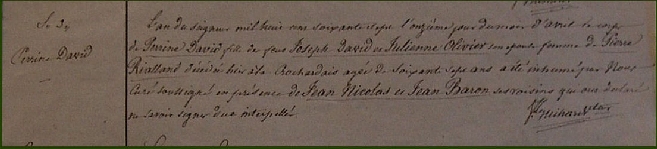 Perrine David
L'an du Seigneur mil huit cent soixante sept l'onzième jour du mois d'avril le corps
de Perrine David fille de feus Joseph David et Julienne Olivier en épouse femme de Pierre
Rialland décédée hier à la Rochardais agée de soixante sept ans a été inhumé par Nous
Curé soussigné en présence de Jean Nicolas et Jean Baron ses voisins qui ont déclaré
ne savoir signer de ce interpellés.